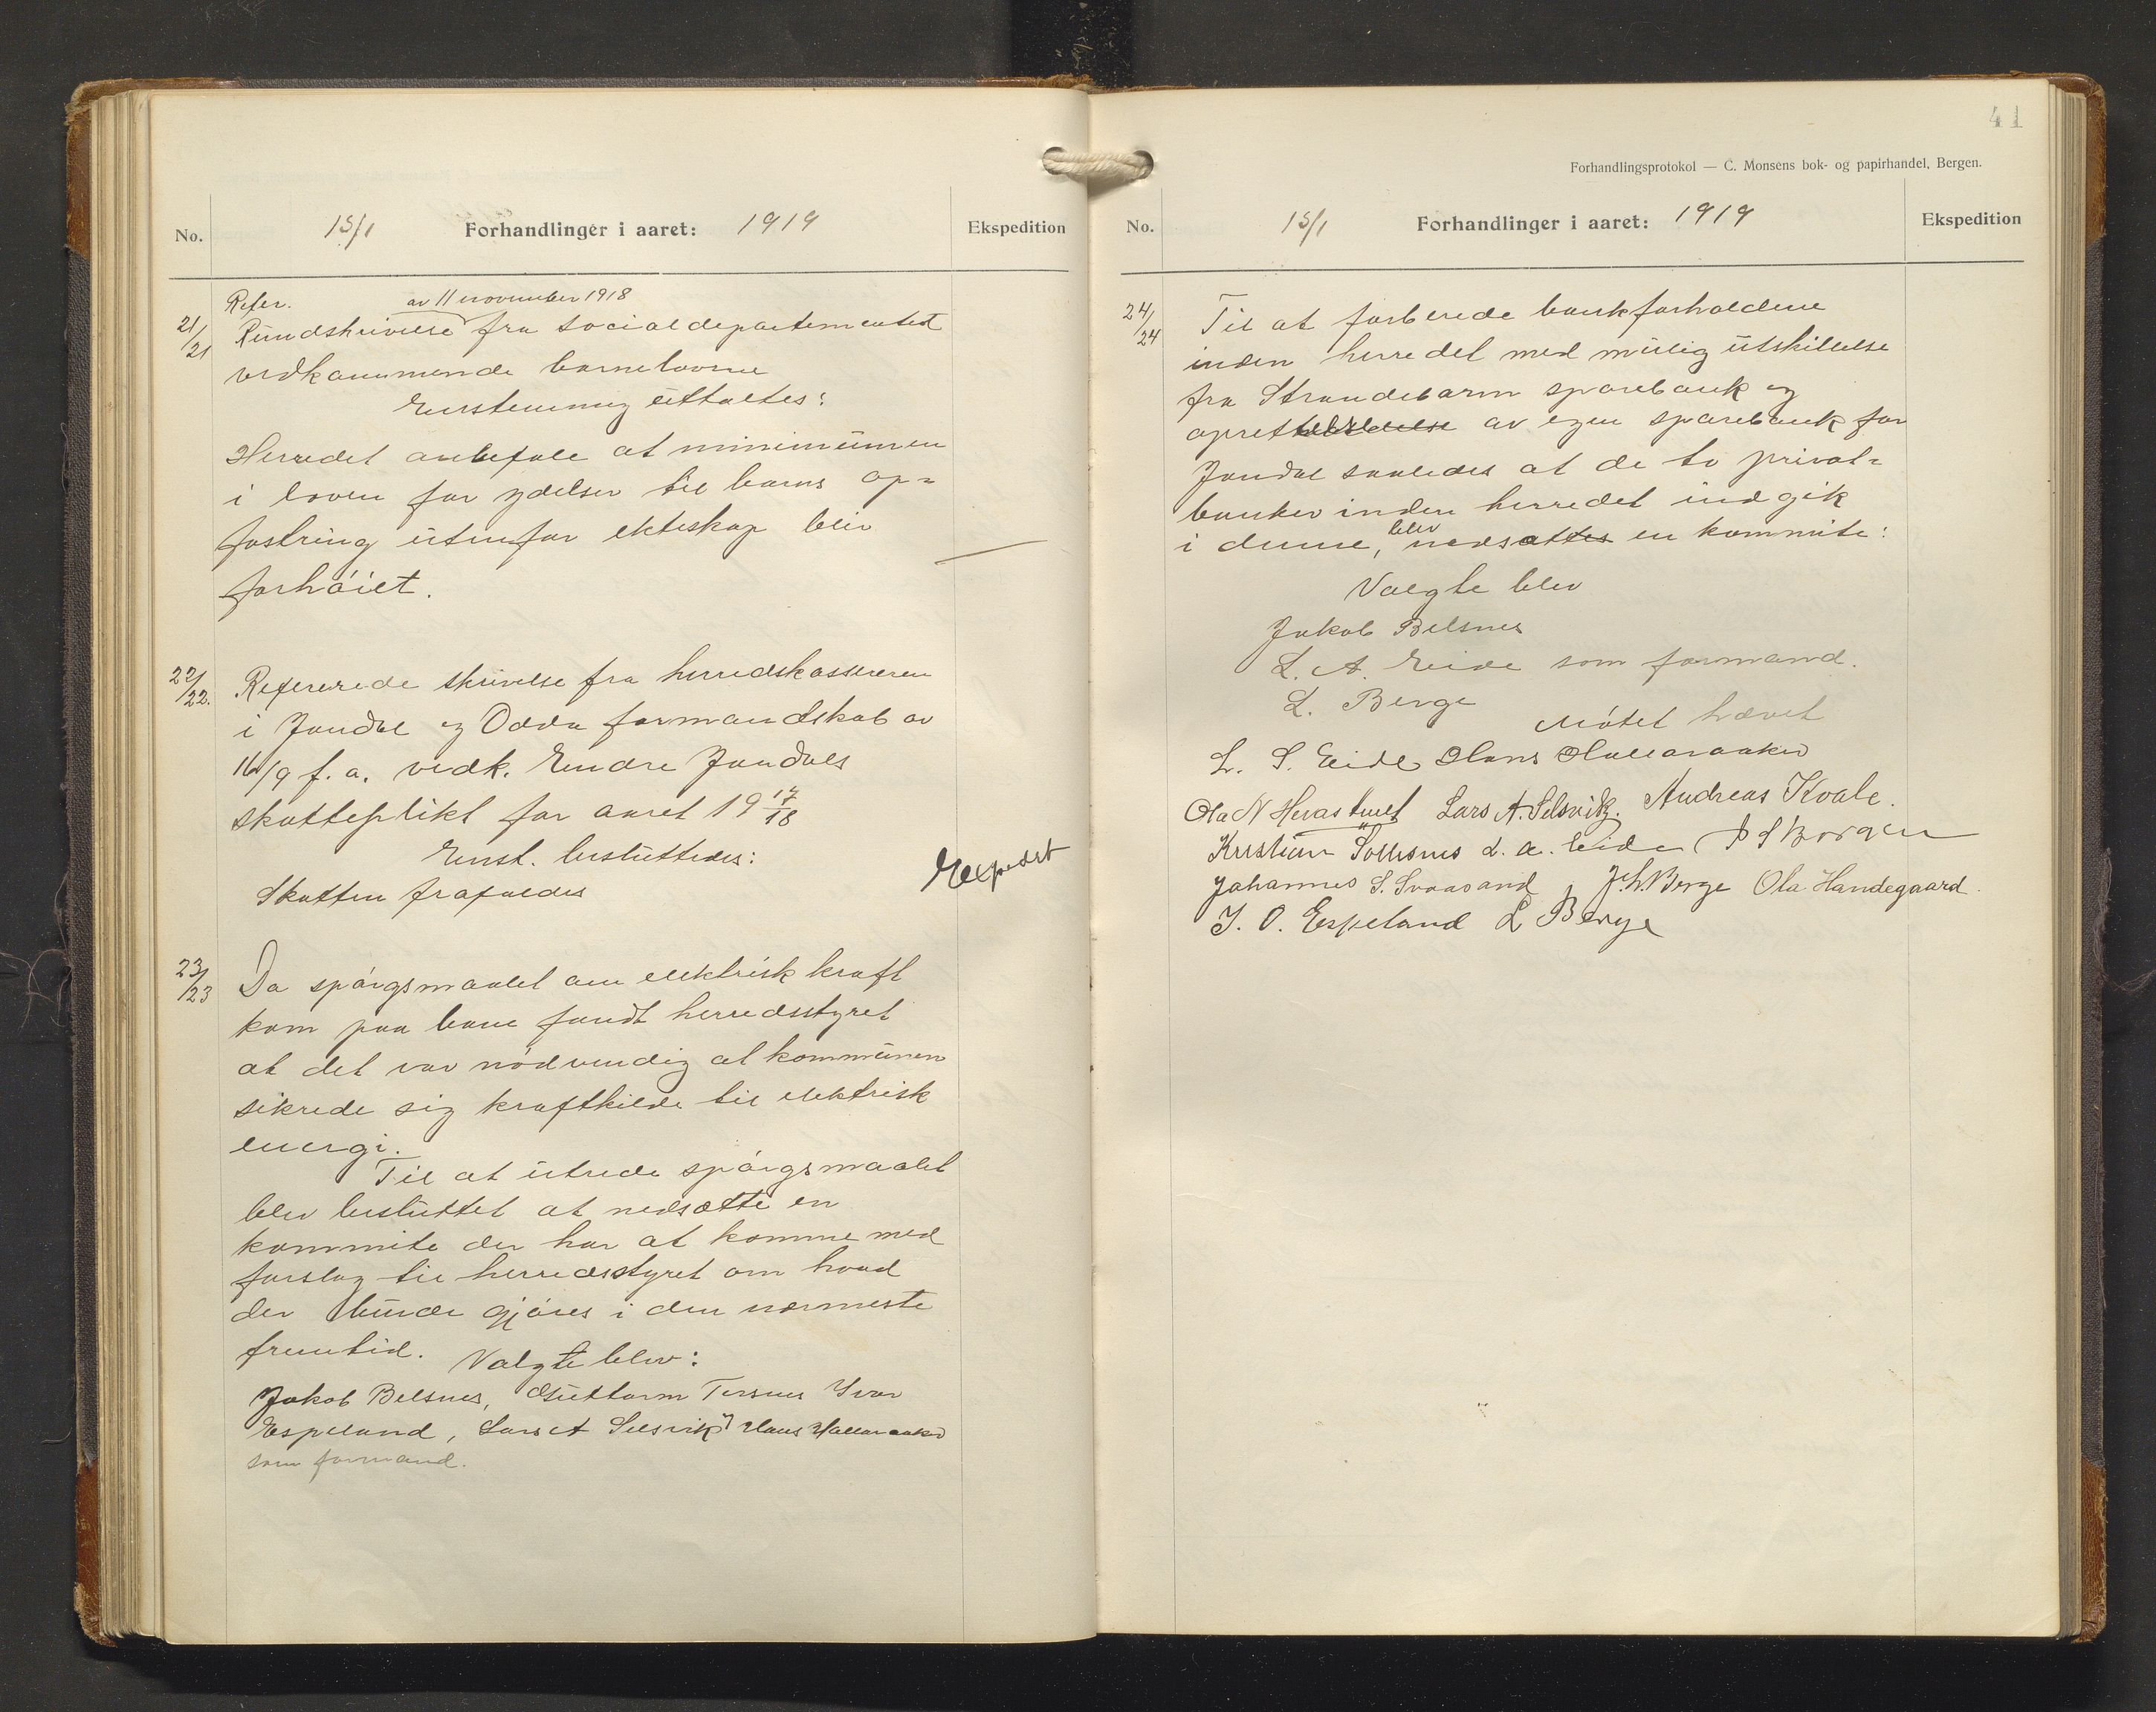 No.
15/1 Forhandlinger i aaret: 1919
Ekspedition
Refer. av 11 november 1918
21/21 Rundskrivelse fra socialdepartementet
vedkommende barnelovene
Enstemmig uttaltes:
Herredet anbefale at minimumen
i loven for ydelser til barns op=
fostring utenfor ekteskap blir
forhöiet.
22/22. Refererede skrivelse fra herredskassereren
i Jondal og Odda formandskab av
16/9 f. a. vedk. Endre Jondals
skatteplikt for aaret 19 17/18
Enst. besluttedes:
Skatten frafaldes
Expedert
23/23 Da spörgsmaalet om elektrisk kraft
kom paa bane fandt herredsstyret
at det var nödvendig at kommunen
sikrede sig kraftkilde til elektrisk
energi.
Til at utrede spörgsmaalet
blev besluttet at nedsætte en
kommite der har at komme med
forslag til herredsstyret om hvad
der burde gjöres i den nærmeste
fremtid. Valgte blev:
Jakob Belsnes, Guttorm Tersnes Ivar
Espeland, Lars A Selsvik og Hans Hallaraaker
som formand.
41
Forhandlingsprotokol — C. Monsens bok- og papirhandel, Bergen.
No.
15/1 Forhandlinger i aaret: 1919
Ekspedition
24/24 Til at forberede bankforholdene
inden herredet med mulig utskillelse
fra Strandebarm sparebank og
oprettelse av egen sparebank for
Jondal saaledes at de to privat=
banker inden herredet indgik
i denne, blev nedsat en kommite:
Valgte blev
Jakob Belsnes
L. A. Eide som formand.
L. Berge
Mötet hævet
L. S. Eide Hans Hallaraaker
Ola N Herastveit Lars A. Selsvik. Andreas Kvale.
Kristian Sollesnes L. A. Eide
Johannes S. Svaasand J. L. Berge Ola Handegaard.
I. O. Espeland L Berge